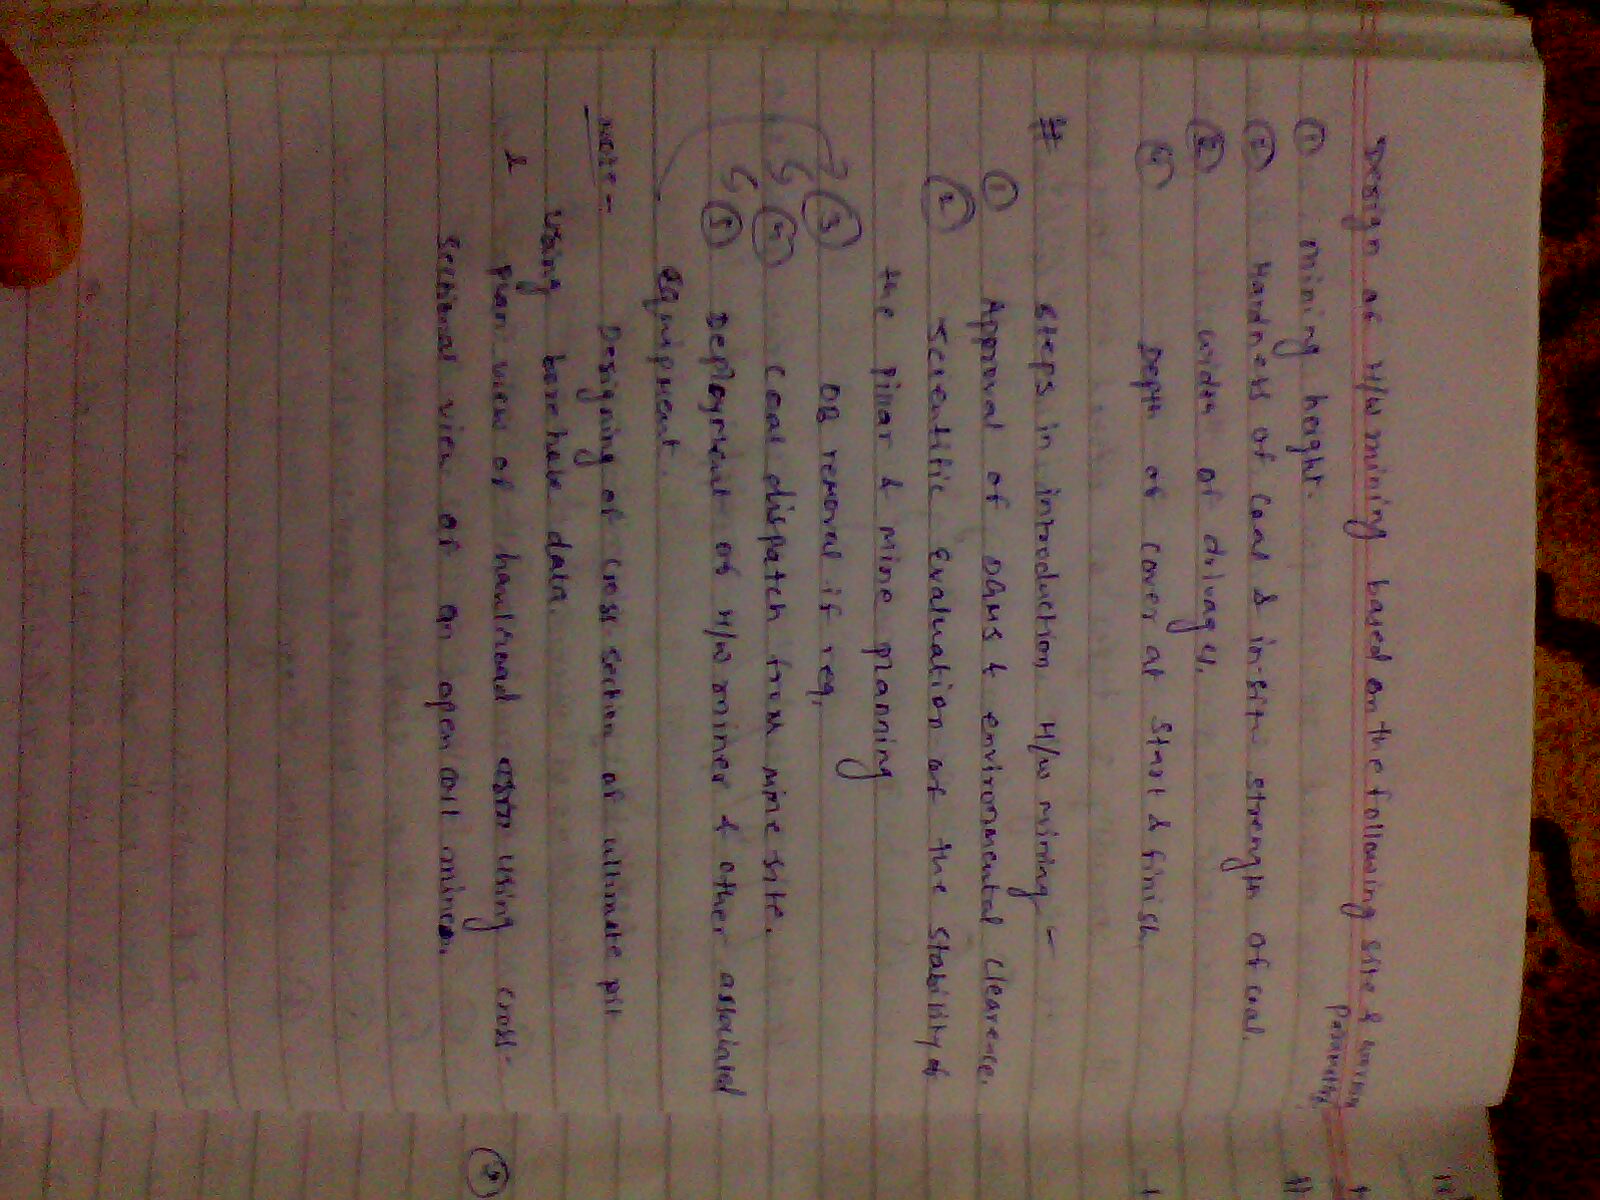 Design of H/W mining based on the following site &
Parameters
① mining height.
② Hardness of Coal & in-situ strength of coal.
③ width of drivage.
④ Depth of cover at start & finish.
# Steps in introduction H/W mining -
① Approval of DGMS & environmental clearence.
② Scientific Evaluation of the stability of
the Pillar & mine planning
③ OB removal if req.
④ Coal dispatch from mine site.
⑤ Deployment of H/W miner & other associated
equipment.
Note - Designing of cross section of ultimate pit
using bore hole data.
& plan view of haul road using cross-
sectional view of an open cast mines.